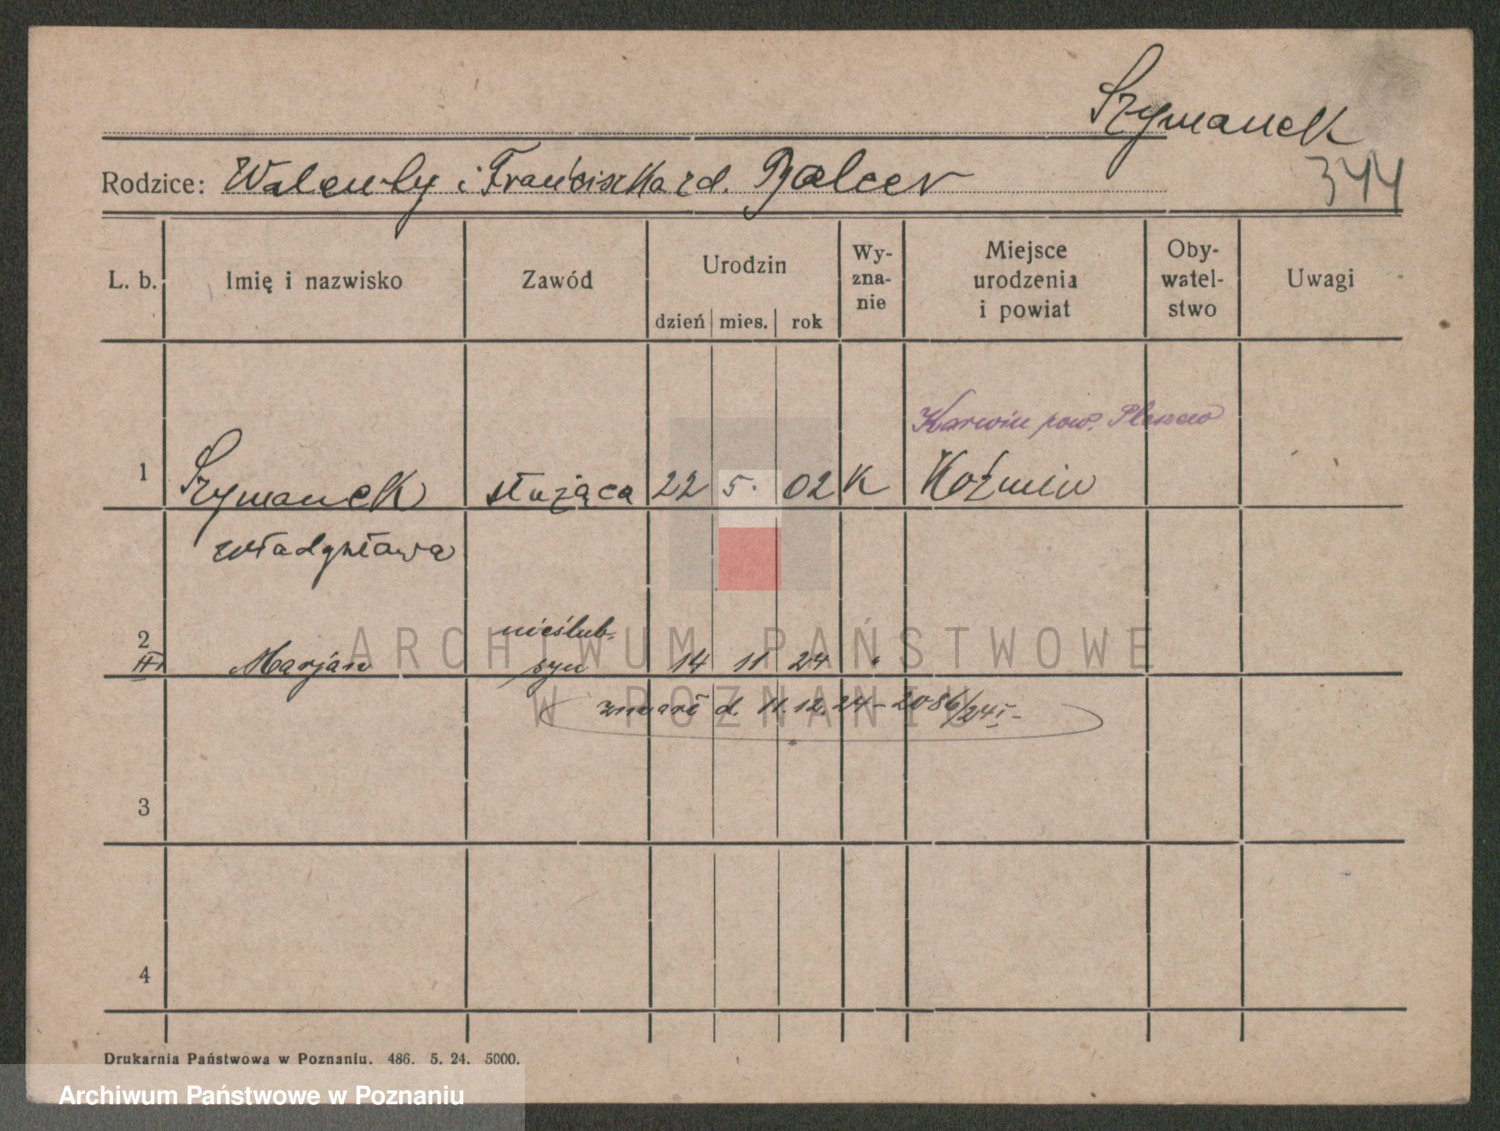 Szymanek
Rodzice: Walenty i Franciszka zd. Balcer
344
L. b.
Imię i nazwisko
Zawód
Urodzin
dzień mies. rok
Wy-
zna-
nie
Miejsce
urodzenia
i powiat
Oby-
watel-
stwo
Uwagi
Karwin pow. Pleszew
1 Szymanek służąca 22 5. 02 K Koźmin
Władysława
nieślub.
2 Marjan syn 14 11 24
III
zmarł d. 11.12.24 - 2086/24 I -
3
4
ARCHIWUM PAŃSTWOWE
W POZNANIU
Drukarnia Państwowa w Poznaniu. 486. 5. 24. 5000.
Archiwum Państwowe w Poznaniu